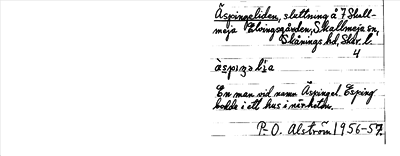 Äspingeliden, sluttning å 7 Skall-
meja Elvingsgården, Skallmeja sn,
Skånings hd, Skbr. l.
4
En man vid namn Äspingel. Esping
bodde i ett hus i närheten.
P.-O. Alström 1956-57.